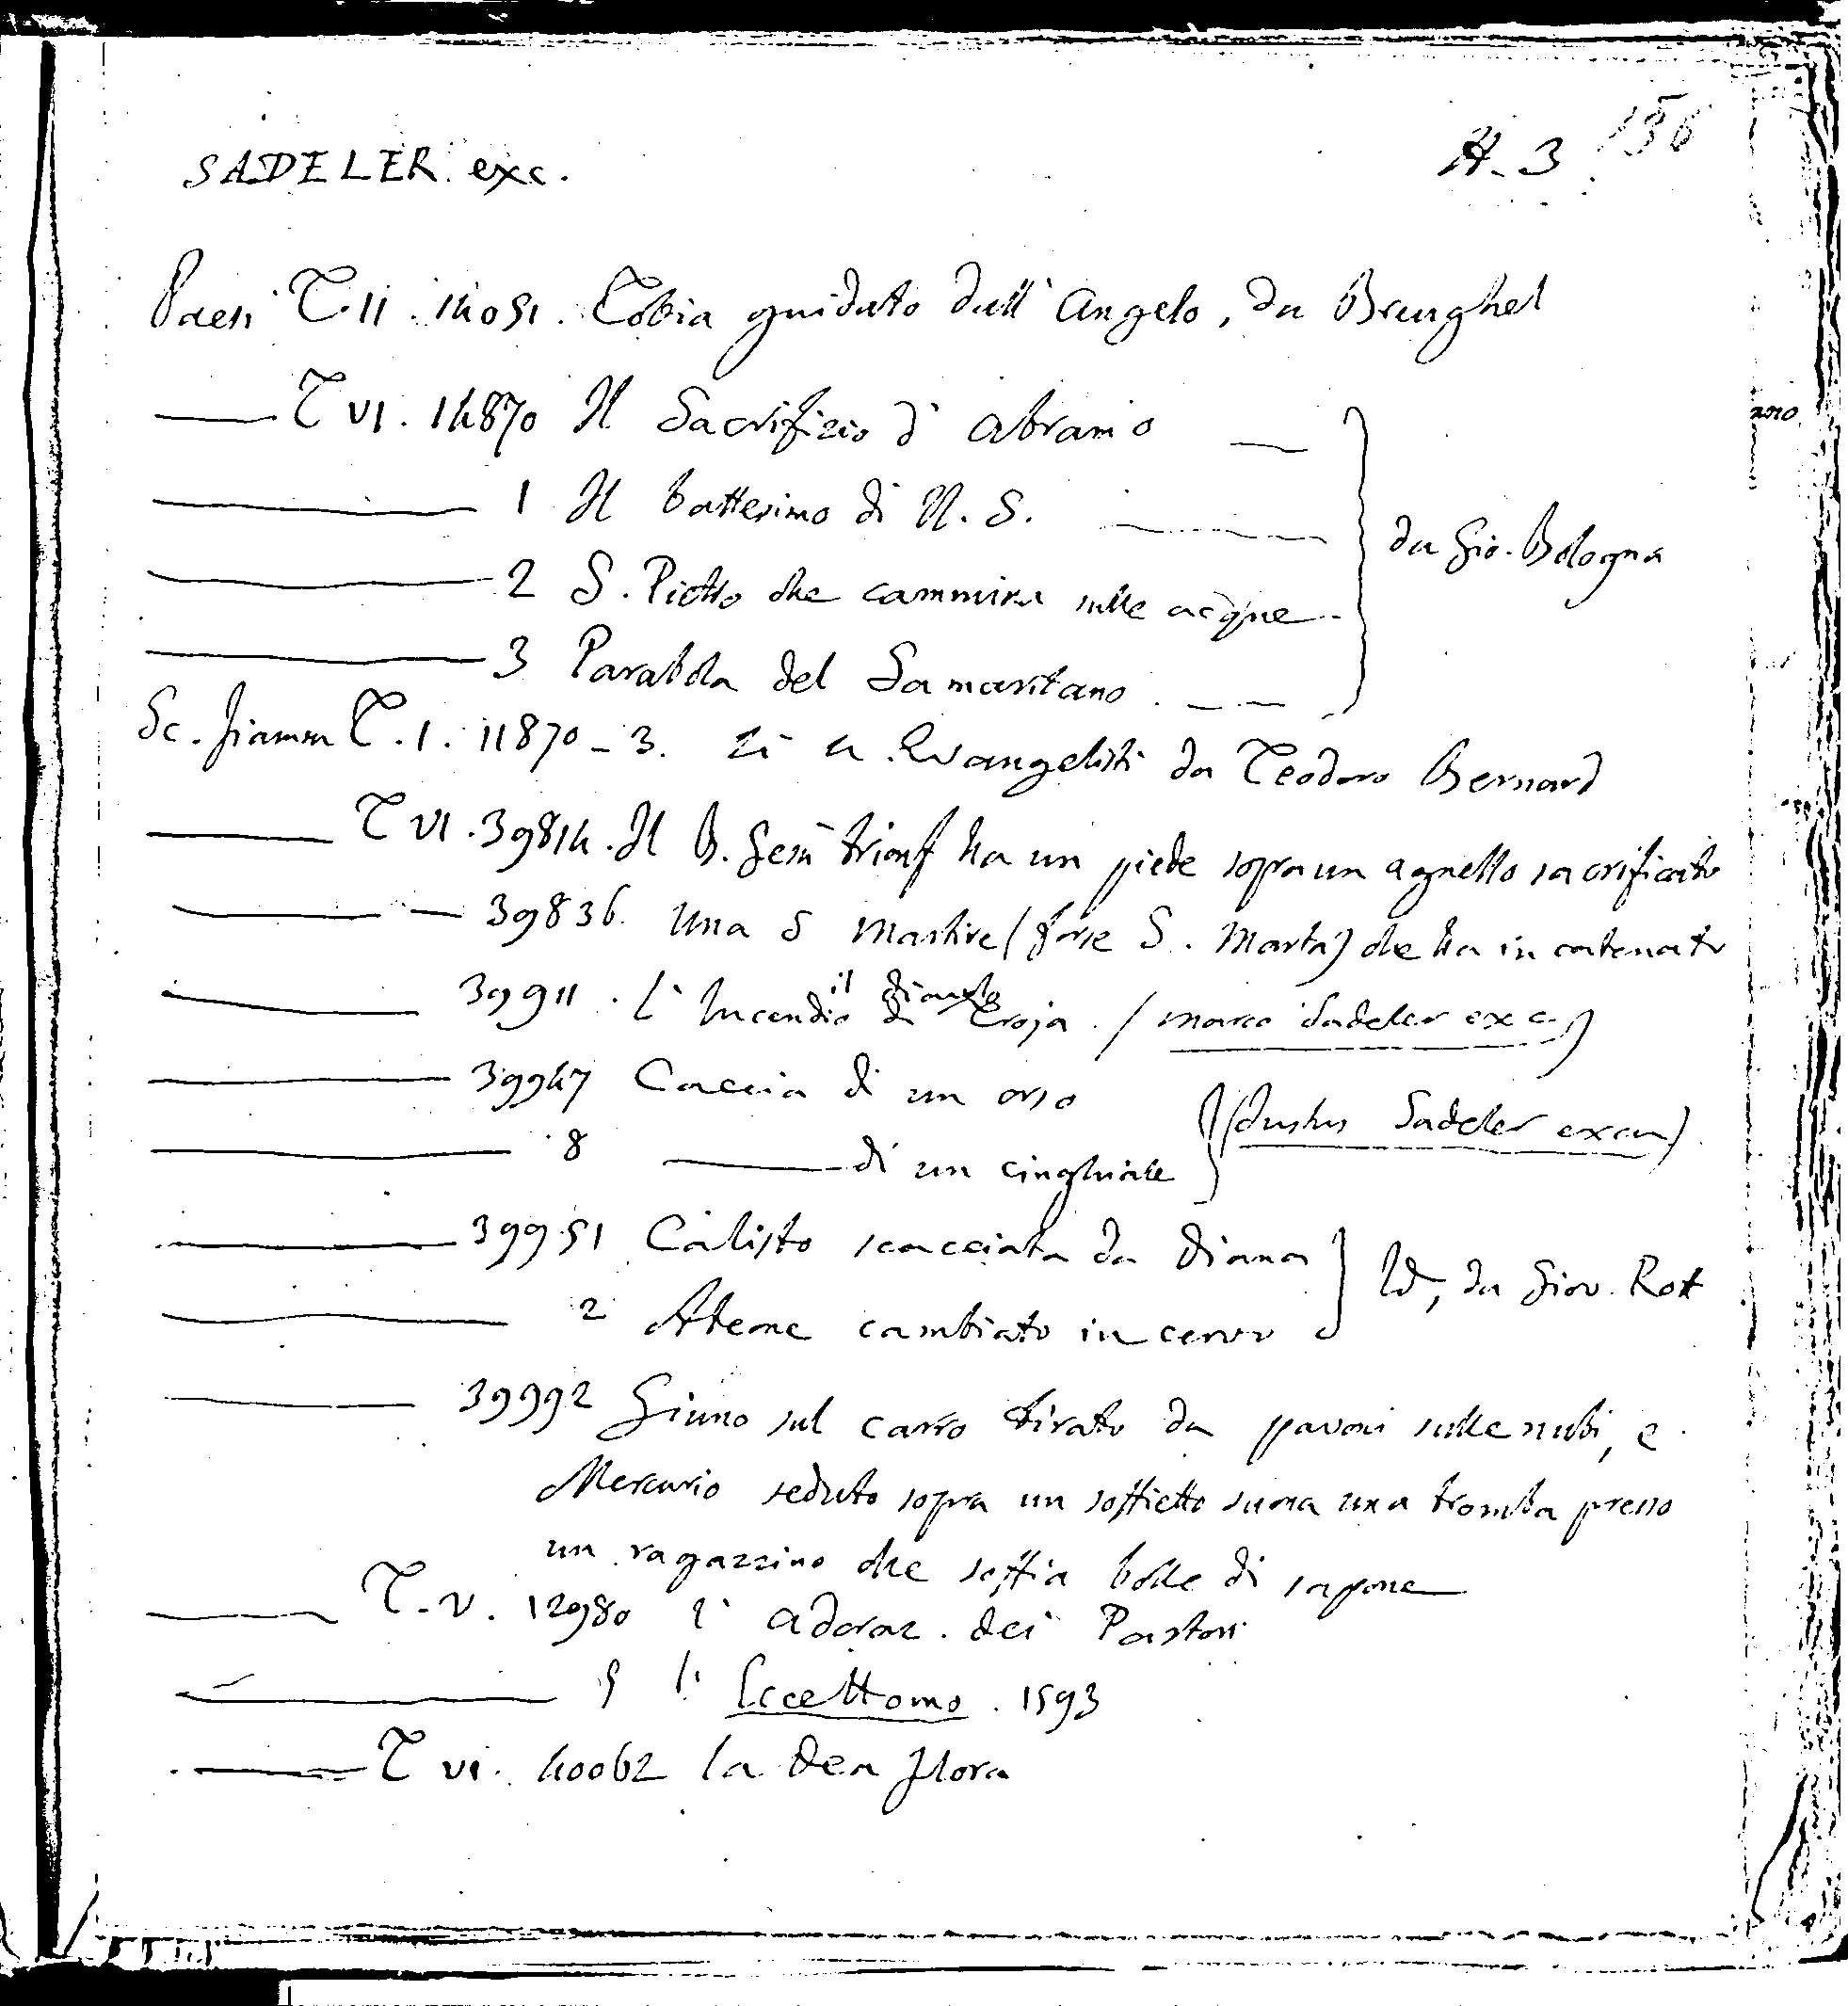 SADELER exc. H. 3 156
Paesi T. II. 14051. Tobia guidato dall' Angelo, da Breughel
—— T VI. 14870 Il Sacrifizio d' Abramo —
—— 1 Il battesimo di N. S. ——
—— 2 S. Pietro che cammina sulle acque -
—— 3 Parabola del Samaritano. ——
da Gio. Bologna
Sc. fiamm T. I. 11870-3. Li 4 Evangelisti da Teodoro Bernard
—— T VI. 39814. Il B. Gesù trionf ha un piede sopra un agnello sacrificato
—— 39836. Una S Martire (forse S. Marta) che ha incatenato
il diavolo
—— 39911. L'Incendio di Troja. (Marco Sadeler exc.)
—— 39947 Caccia di un orso
—— 8 —— di un cinghiale
(Justus Sadeler excu)
—— 39951 Calisto scacciata da Diana
—— 2 Ateone cambiato in cervo
Id, da Giov. Rot
—— 39992 Giuno sul carro tirato da pavoni sulle nubi, e
Mercurio seduto sopra un soffietto suona una tromba presso
un ragazzino che soffia bolle di sapone
—— T. V. 12980 l' adoraz. dei Pastori
—— 9 l' Eccettomo. 1593
—— T VI. 40062 la Dea Flora